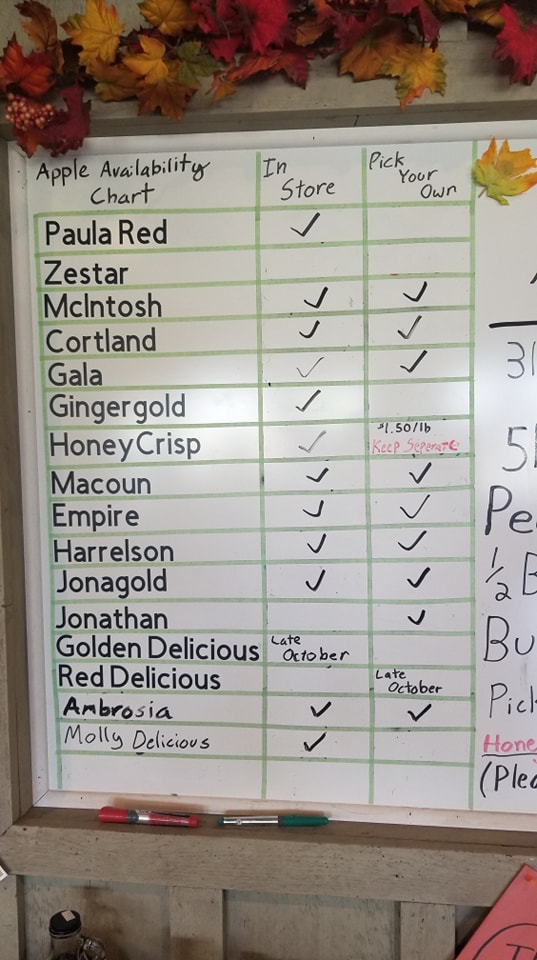 Apple Availability Chart In Store Pick Your Own
Paula Red ✓
Zestar
McIntosh ✓ ✓
Cortland ✓ ✓
Gala ✓ ✓
Gingergold ✓
HoneyCrisp ✓ $1.50/lb Keep Seperate
Macoun ✓ ✓
Empire ✓ ✓
Harrelson ✓ ✓
Jonagold ✓ ✓
Jonathan ✓
Golden Delicious Late October
Red Delicious Late October
Ambrosia ✓ ✓
Molly Delicious ✓
1/2 B
Bu
Pick
Hone
(Plea